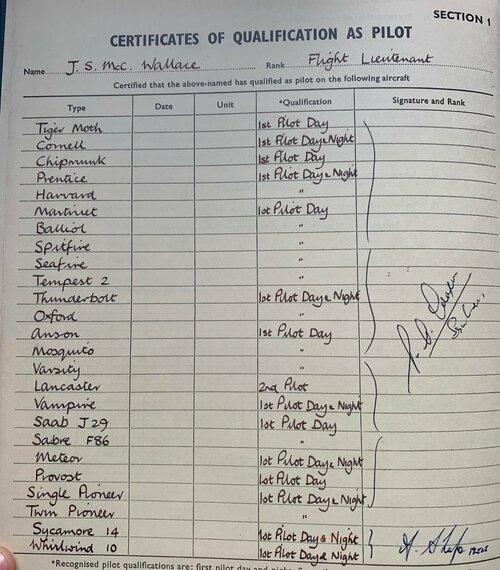 SECTION 1
CERTIFICATES OF QUALIFICATION AS PILOT
Name J. S. Mc. Wallace Rank Flight Lieutenant
Certified that the above-named has qualified as pilot on the following aircraft
Type Date Unit *Qualification Signature and Rank
Tiger Moth 1st Pilot Day
Cornell 1st Pilot Day & Night
Chipmunk 1st Pilot Day
Prentice 1st Pilot Day & Night
Harvard "
Martinet 1st Pilot Day
Balliol "
Spitfire "
Seafire "
Tempest 2 "
Thunderbolt 1st Pilot Day & Night
Oxford "
Anson 1st Pilot Day
Mosquito "
Varsity "
Lancaster 2nd Pilot
Vampire 1st Pilot Day & Night
Saab J 29 1st Pilot Day
Sabre F86 "
Meteor 1st Pilot Day & Night
Provost 1st Pilot Day
Single Pioneer 1st Pilot Day & Night
Twin Pioneer "
Sycamore 14 1st Pilot Day & Night
Whirlwind 10 1st Pilot Day & Night
*Recognised pilot qualifications are: first pilot day and night